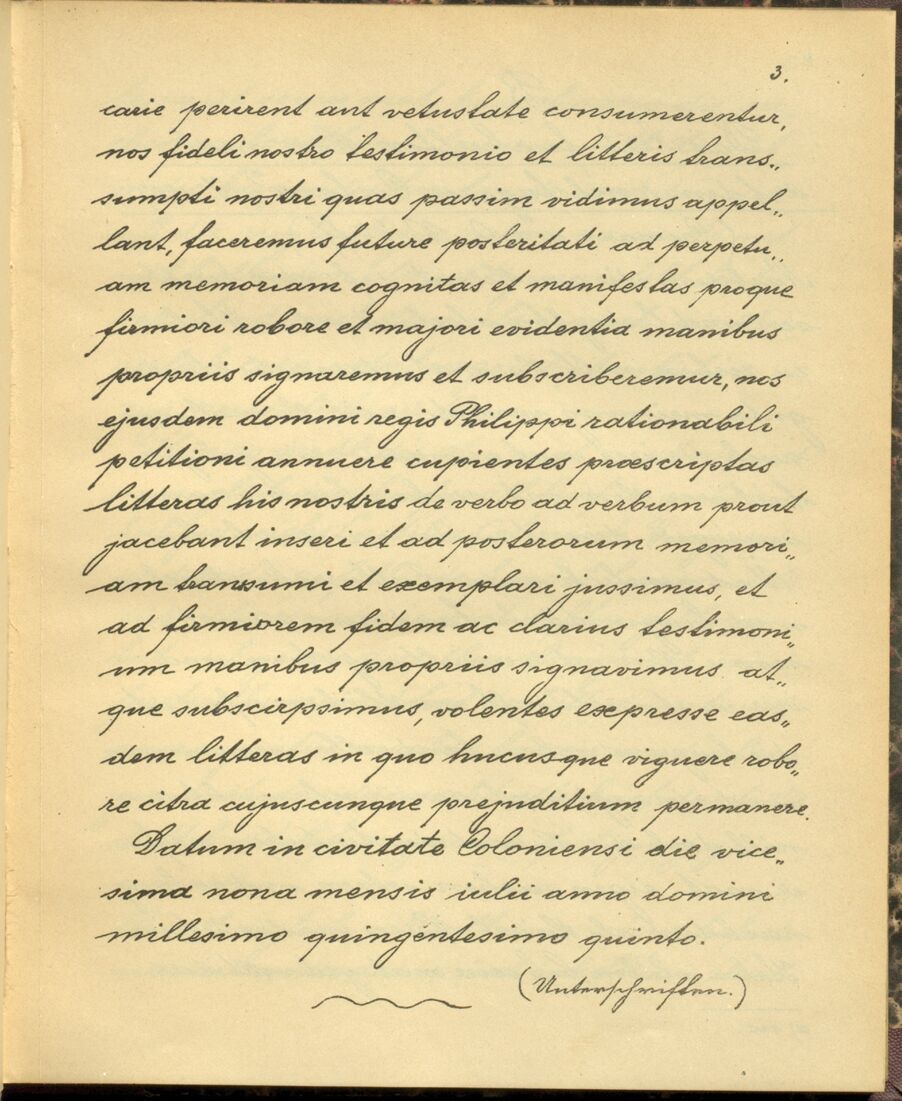 3.
carie perirent aut vetustate consumerentur,
nos fideli nostro testimonio et litteris trans„
sumpti nostri quas passim vidimus appel„
lant, faceremus future posteritati ad perpetu„
am memoriam cognitas et manifestas proque
firmiori robore et majori evidentia manibus
propriis signaremus et subscriberemur, nos
ejusdem domini regis Philippi rationabili
petitioni annuere cupientes præscriptas
litteras his nostris de verbo ad verbum prout
jacebant inseri et ad posterorum memori„
am transsumi et exemplari jussimus, et
ad firmiorem fidem ac clarius testimoni„
um manibus propriis signavimus at„
que subscirpsimus, volentes expresse eas„
dem litteras in quo hucusque viguere robo„
re citra cujuscunque prejuditium permanere.
Datum in civitate Coloniensi die vice„
sima nona mensis iulii anno domini
millesimo quingentesimo quinto.
(Unterschriften.)